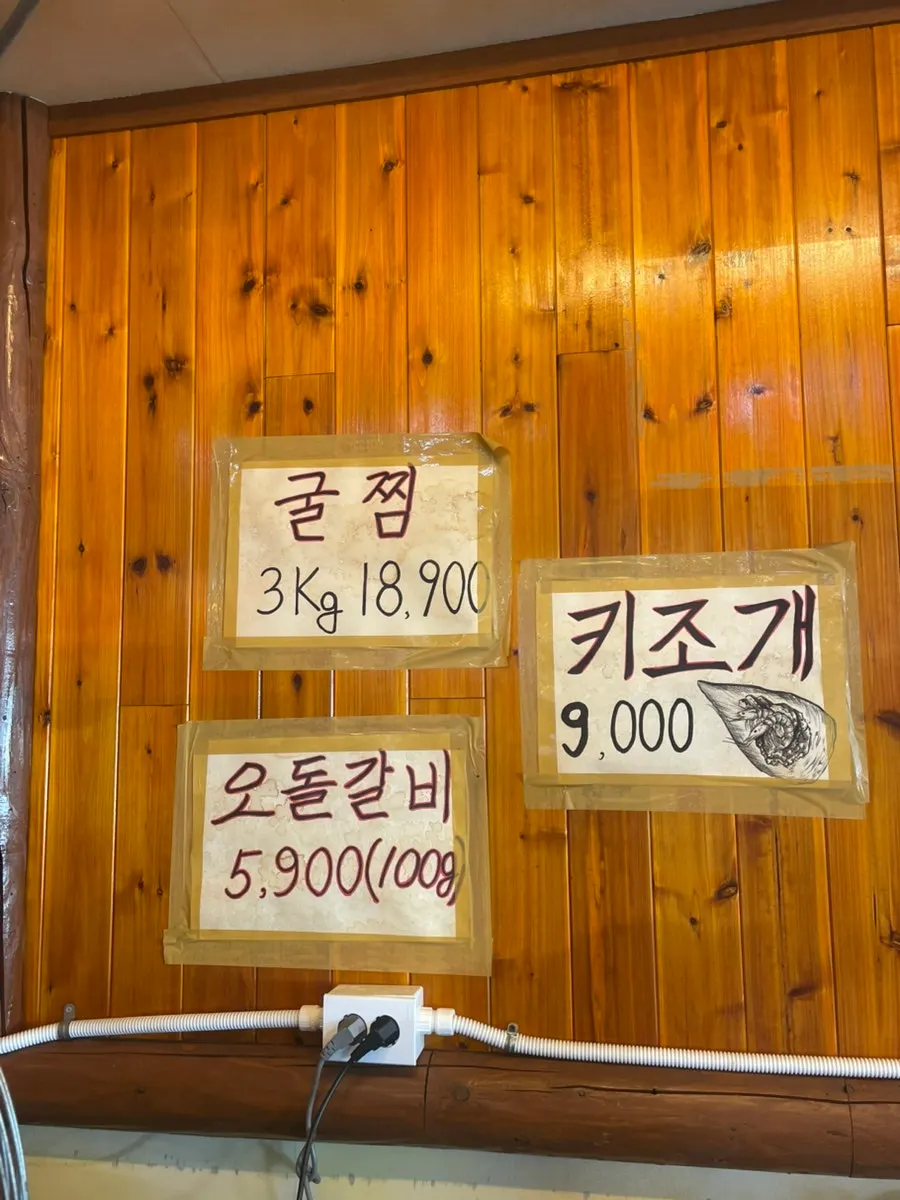 굴 찜
3Kg 18,900
키조개
9,000
오돌갈비
5,900(100g)